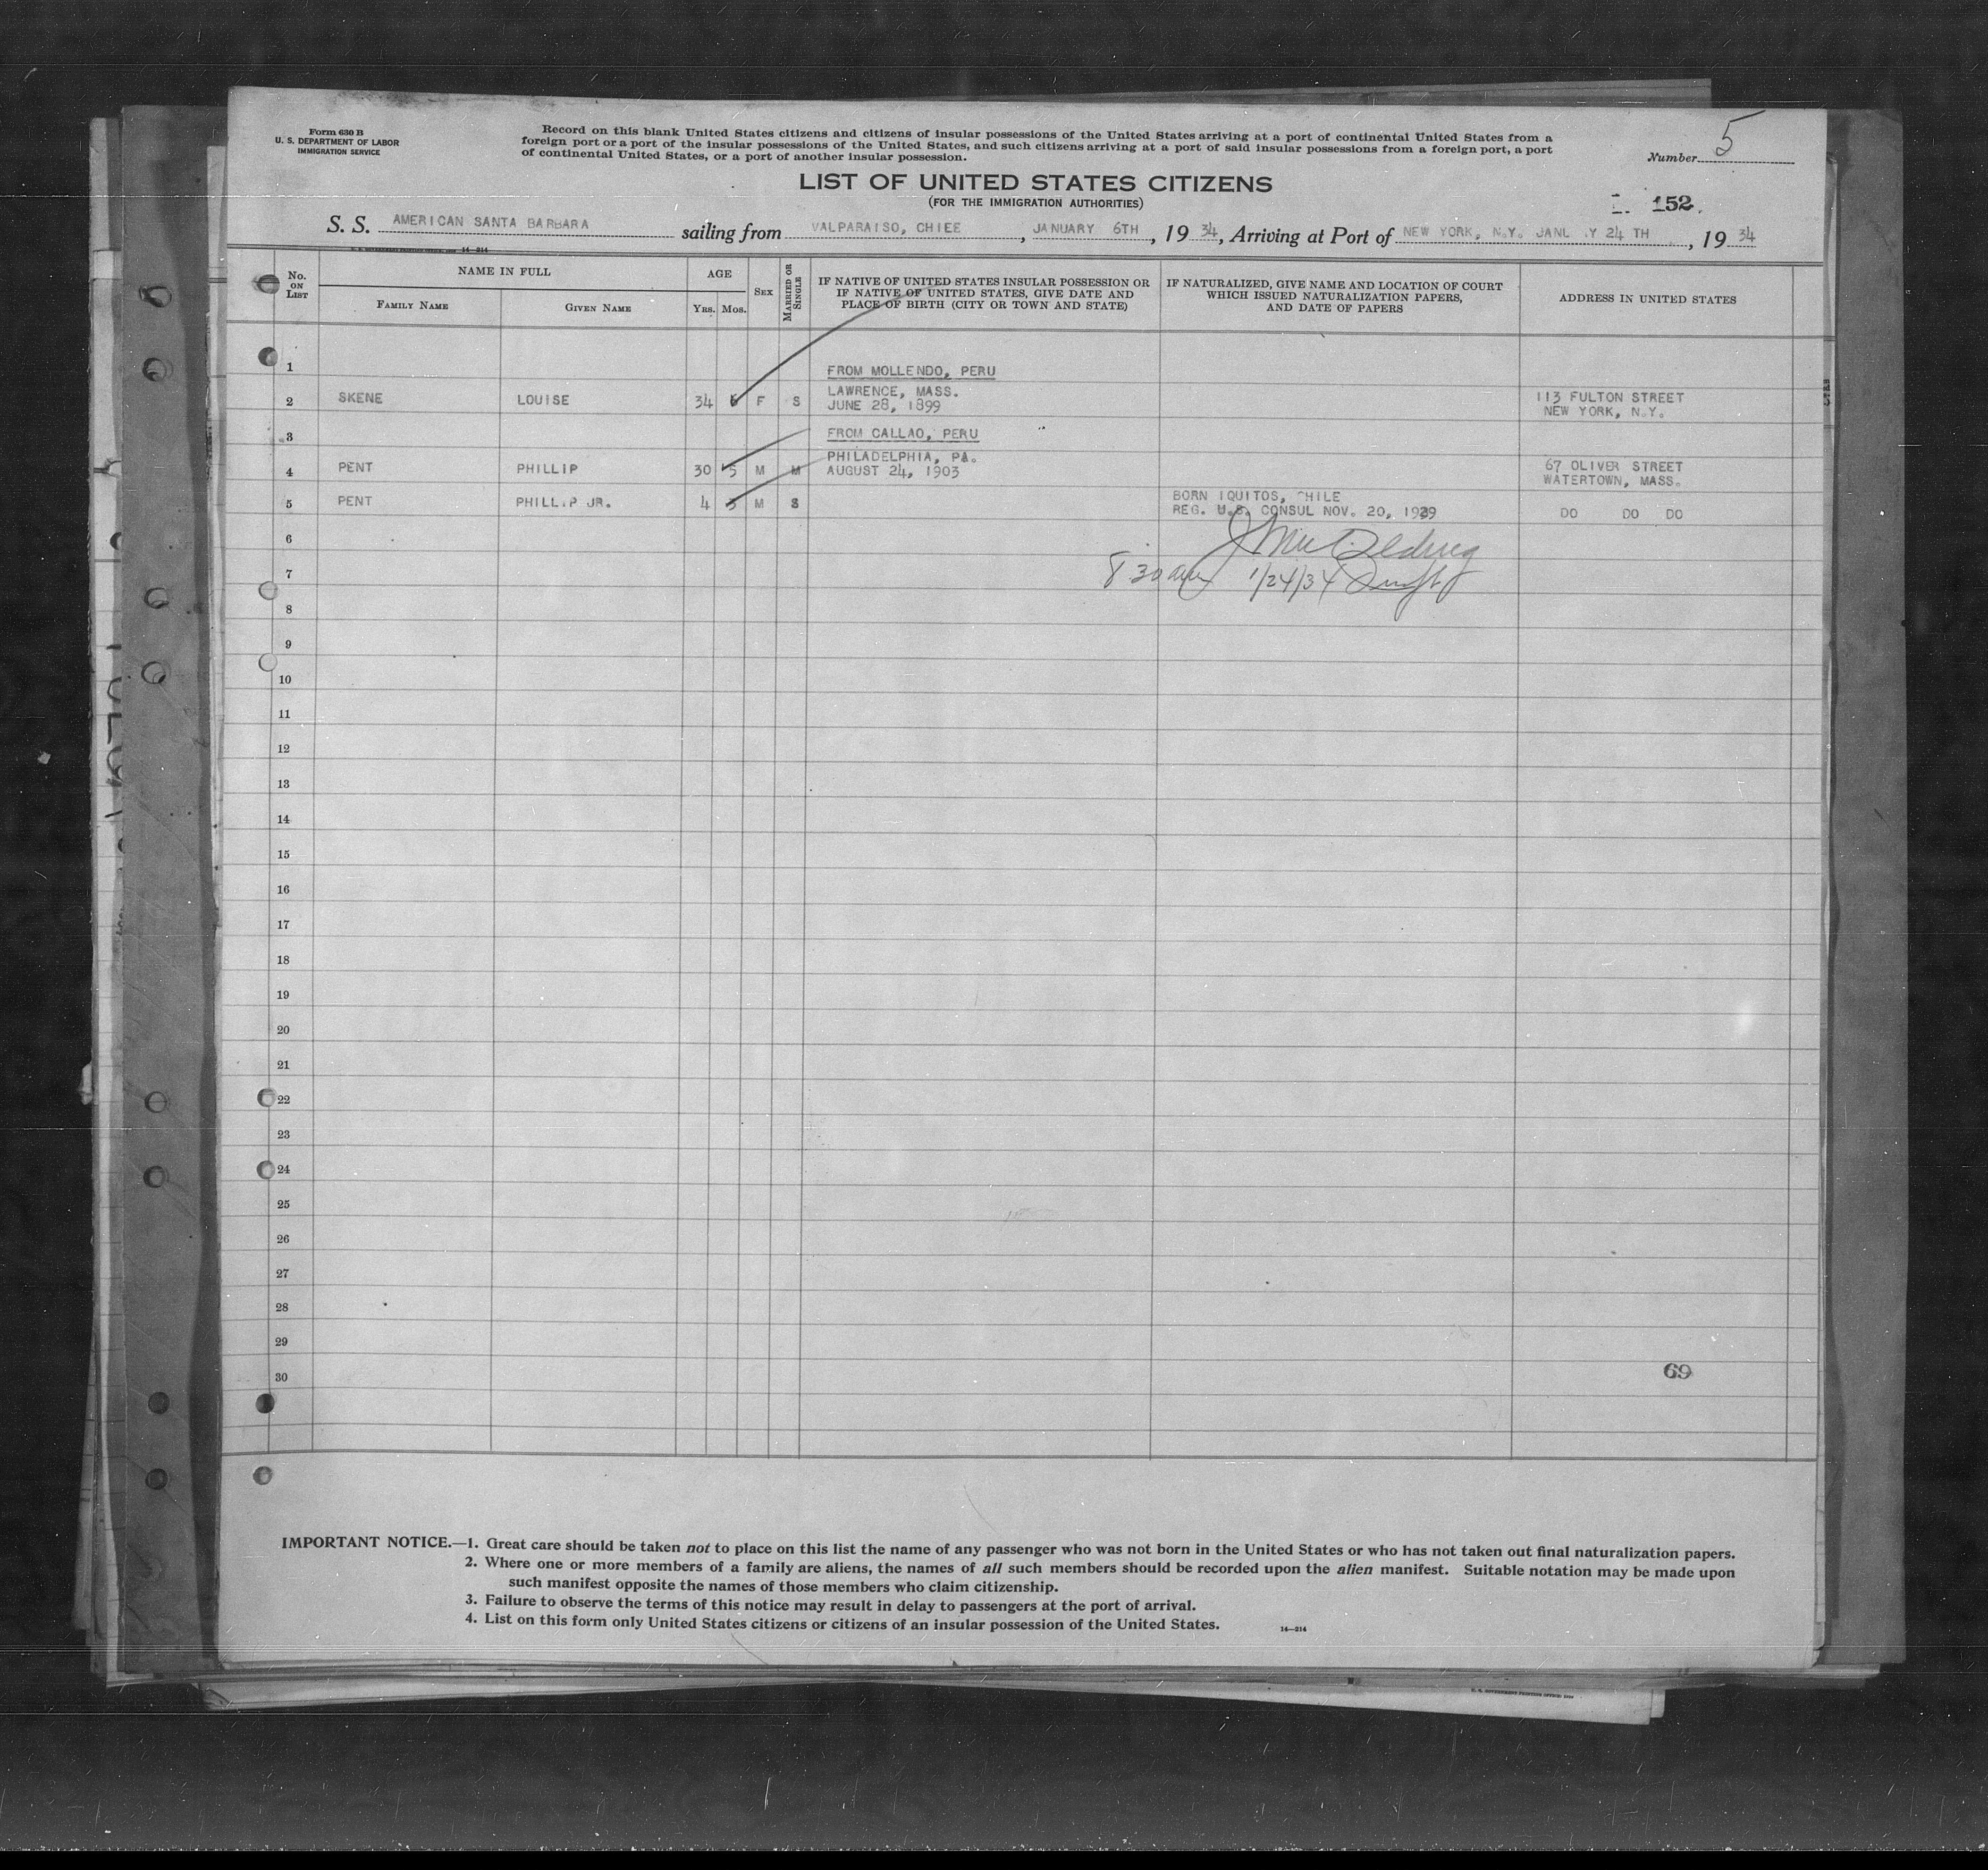 Form 630 B
U. S. DEPARTMENT OF LABOR
IMMIGRATION SERVICE
Record on this blank United States citizens and citizens of insular possessions of the United States arriving at a port of continental United States from a
foreign port or a port of the insular possessions of the United States, and such citizens arriving at a port of said insular possessions from a foreign port, a port
of continental United States, or a port of another insular possession.
Number 5
LIST OF UNITED STATES CITIZENS
(FOR THE IMMIGRATION AUTHORITIES)
152
S. S. AMERICAN SANTA BARBARA sailing from VALPARAISO, CHIEE, JANUARY 6TH, 19 34, Arriving at Port of NEW YORK, N.Y. JANU Y 24 TH, 19 34
14-214
No. ON LIST
NAME IN FULL
FAMILY NAME
GIVEN NAME
AGE
YRS. MOS.
SEX
MARRIED OR SINGLE
IF NATIVE OF UNITED STATES INSULAR POSSESSION OR
IF NATIVE OF UNITED STATES, GIVE DATE AND
PLACE OF BIRTH (CITY OR TOWN AND STATE)
IF NATURALIZED, GIVE NAME AND LOCATION OF COURT
WHICH ISSUED NATURALIZATION PAPERS,
AND DATE OF PAPERS
ADDRESS IN UNITED STATES
1
FROM MOLLENDO, PERU
2 SKENE LOUISE 34 6 F S LAWRENCE, MASS. 113 FULTON STREET
JUNE 28, 1899 NEW YORK, N.Y.
3 FROM CALLAO, PERU
4 PENT PHILLIP 30 5 M M PHILADELPHIA, PA. 67 OLIVER STREET
AUGUST 24, 1903 WATERTOWN, MASS.
5 PENT PHILLIP JR. 4 3 M S BORN IQUITOS, CHILE
REG. U.S. CONSUL NOV. 20, 1929 DO DO DO
6
7 8 30 am 1/24/34
8
9
10
11
12
13
14
15
16
17
18
19
20
21
22
23
24
25
26
27
28
29
30
69
IMPORTANT NOTICE.—1. Great care should be taken not to place on this list the name of any passenger who was not born in the United States or who has not taken out final naturalization papers.
2. Where one or more members of a family are aliens, the names of all such members should be recorded upon the alien manifest. Suitable notation may be made upon
such manifest opposite the names of those members who claim citizenship.
3. Failure to observe the terms of this notice may result in delay to passengers at the port of arrival.
4. List on this form only United States citizens or citizens of an insular possession of the United States.
14—214